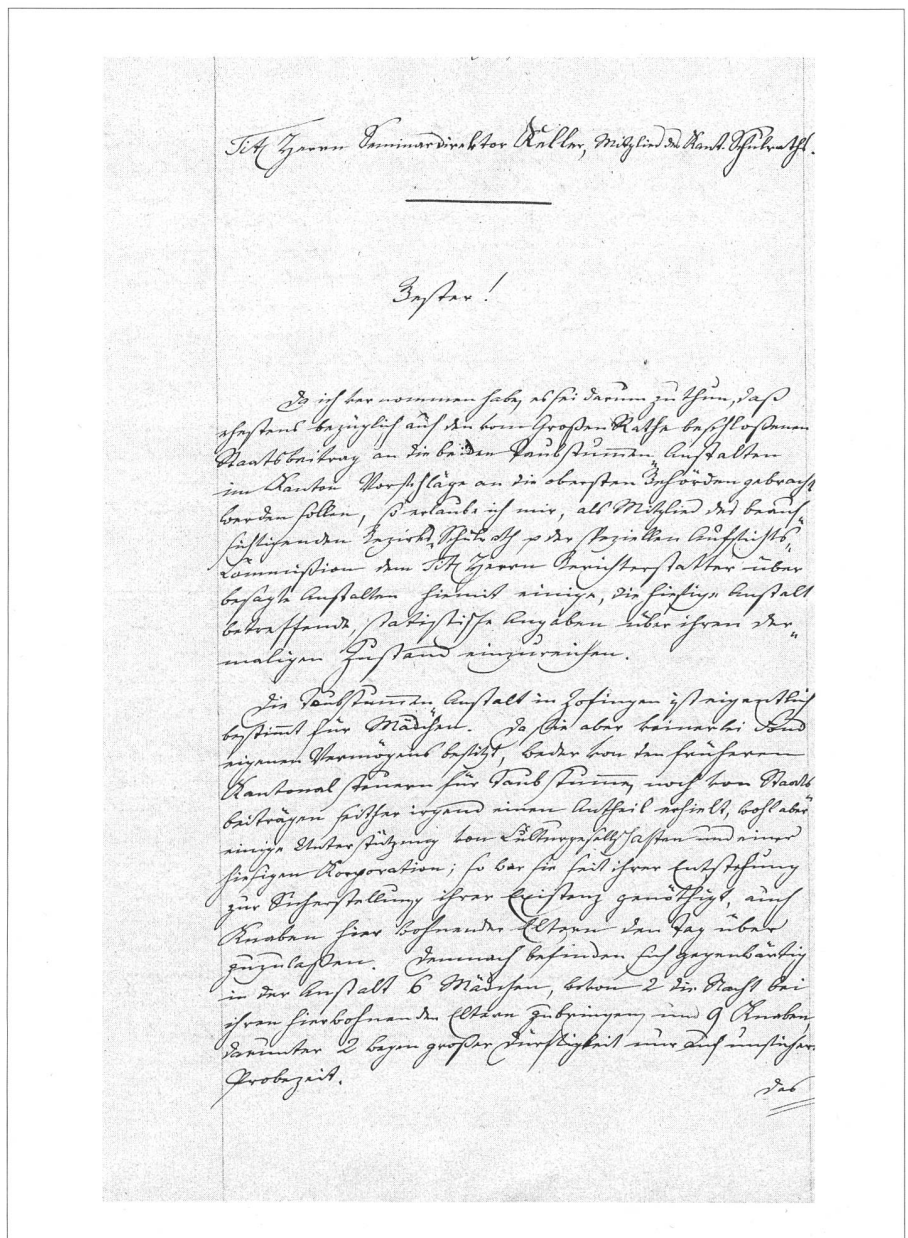 Titl Herrn Seminardirektor Keller, Mitglied des Kant. Schulraths.
Bester!
Da ich vernommen habe, es sei darum zu thun, daß
ehestens bezüglich auf den vom Großen Rathe beschloßenen
Staatsbeitrag an die beiden Taubstummen Anstalten
im Kanton Vorschläge an die obersten Behörden gebracht
werden sollen, so erlaube ich mir, als Mitglied des beauf„
sichtigenden Bezirks„Schulrath der speziellen Aufsichts„
Commißion dem Titl Herrn Berichterstatter über
besagte Anstalten hiemit einige, die hiesige Anstalt
betreffende, statistische Angaben über ihren der„
maligen Zustand einzureichen.
Die Taubstummen Anstalt in Zofingen ist eigentlich
bestimmt für Mädchen. Da sie aber keinerlei Fond
eigenen Vermögens besitzt, weder von den früheren
Kantonalsteuern für Taubstumme, noch von Staats„
beiträgen seither irgend einen Antheil erhielt, wohl aber
einige Unterstützung von Culturgesellschaften und einer
hiesigen Korporation; so war sie seit ihrer Entstehung
zur Sicherstellung ihrer Existenz genöthigt, auch
Knaben hier wohnender Eltern den Tag über
zuzulaßen. Demnach befinden sich gegenwärtig
in der Anstalt 6 Mädchen, wovon 2 die Nacht bei
ihren hierwohnenden Eltern zubringen, und 9 Knaben,
darunter 2 wegen großer Dürftigkeit nur auf unsicher
Probezeit.
Das